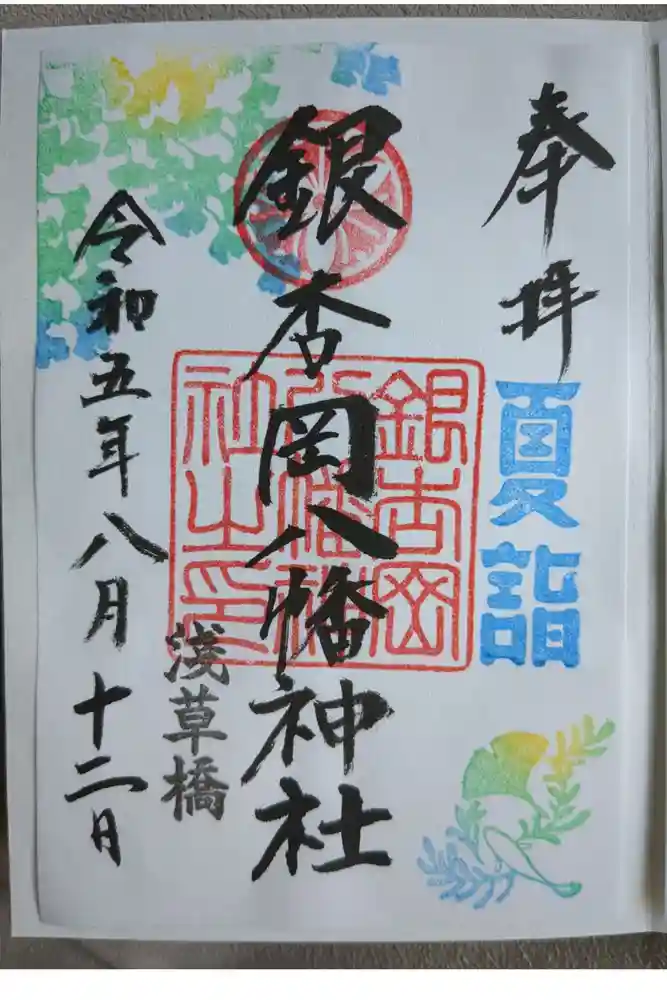 奉拝
夏詣
銀杏岡八幡神社
銀杏岡
八幡神
社之印
浅草橋
令和五年八月十二日